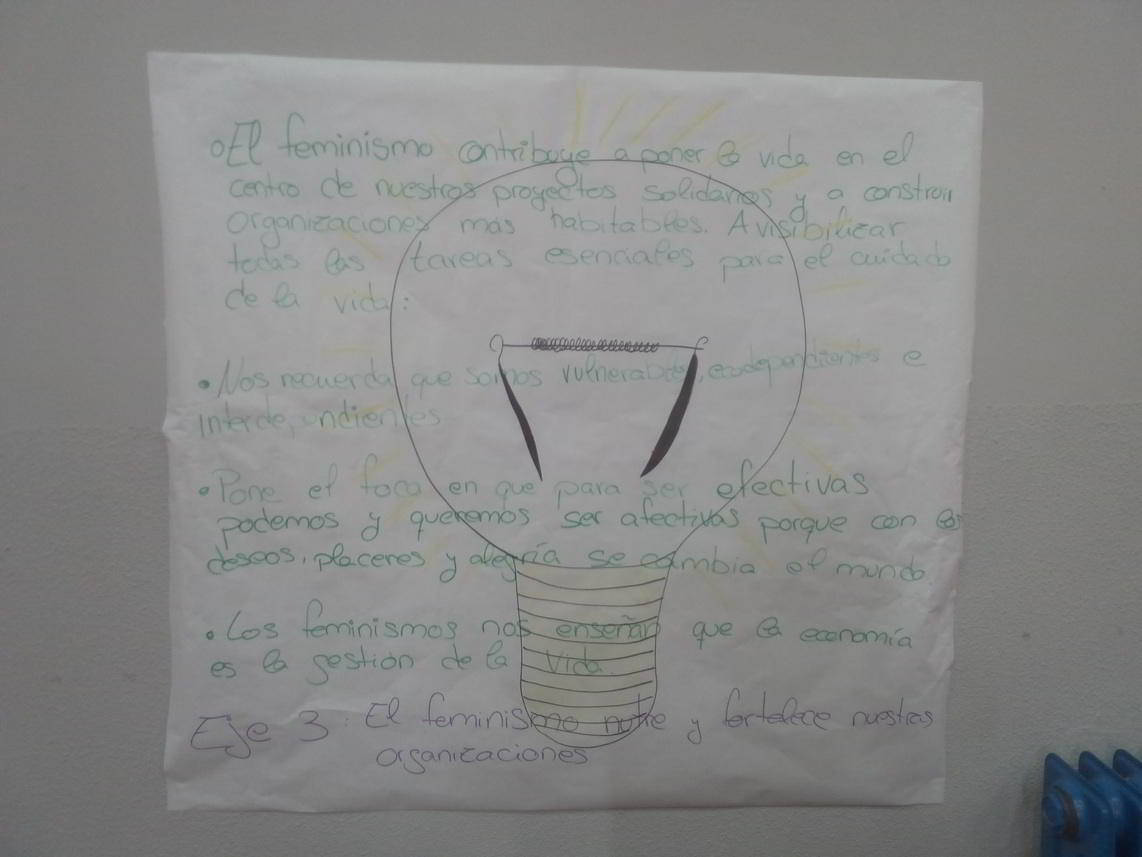 El feminismo contribuye a poner la vida en el
centro de nuestros proyectos solidarios y a construir
organizaciones más habitables. A visibilizar
todas las tareas esenciales para el cuidado
de la vida:
• Nos recuerda que somos vulnerables, ecodependientes e
interdependientes
• Pone el foco en que para ser efectivas
podemos y queremos ser afectivas porque con los
deseos, placeres y alegría se cambia el mundo.
• Los feminismos nos enseñan que la economía
es la gestión de la vida.
Eje 3: El feminismo nutre y fortalece nuestras
organizaciones